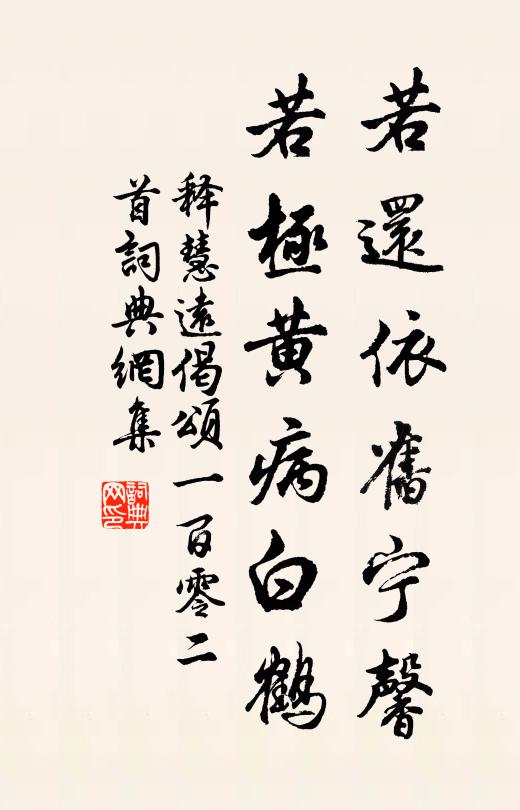 若還依舊宁馨
若極黃病白鶴
释慧遠偈頌一百零二
首詞典網集
詞典網印